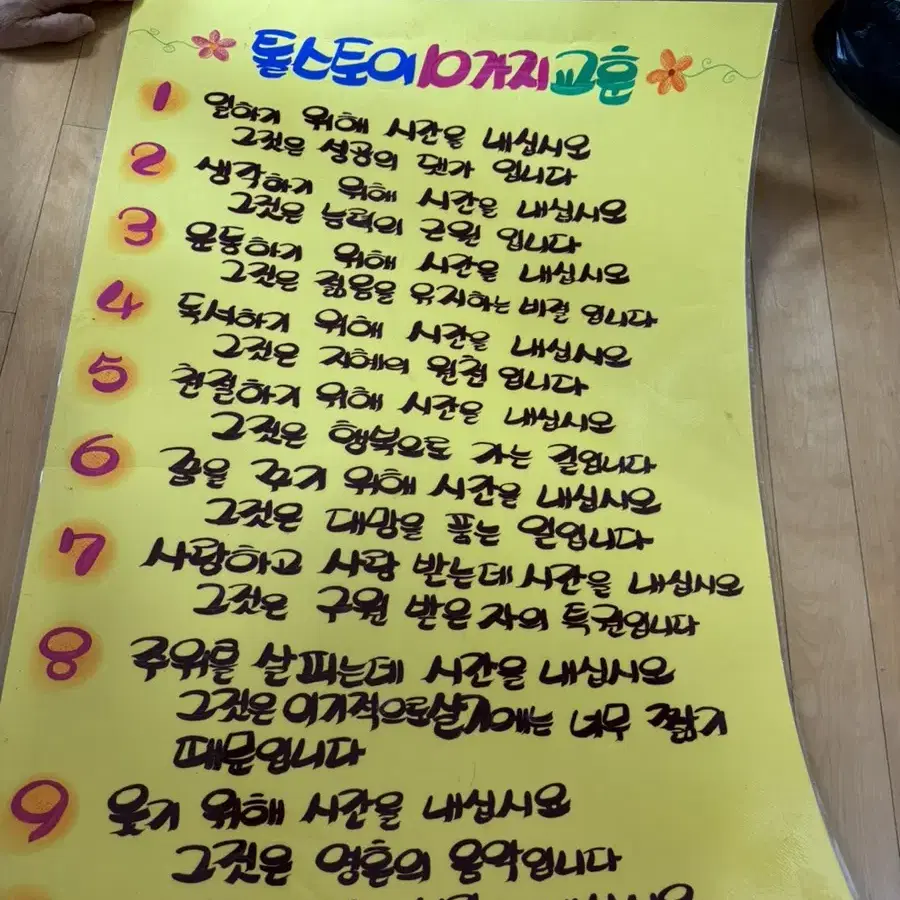 톨스토이10가지교훈
1 일하기 위해 시간을 내십시오
그것은 성공의 댓가 입니다
2 생각하기 위해 시간을 내십시오
그것은 능력의 근원 입니다
3 운동하기 위해 시간을 내십시오
그것은 젊음을 유지하는 비결 입니다
4 독서하기 위해 시간을 내십시오
그것은 지혜의 원천 입니다
5 친절하기 위해 시간을 내십시오
그것은 행복으로 가는 길입니다
6 꿈을 꾸기 위해 시간을 내십시오
그것은 대망을 품는 일입니다
7 사랑하고 사랑 받는데 시간을 내십시오
그것은 구원 받은 자의 특권입니다
8 주위를 살피는데 시간을 내십시오
그것은 이기적으로살기에는 너무 짧기
때문입니다
9 웃기 위해 시간을 내십시오
그것은 영혼의 음악입니다